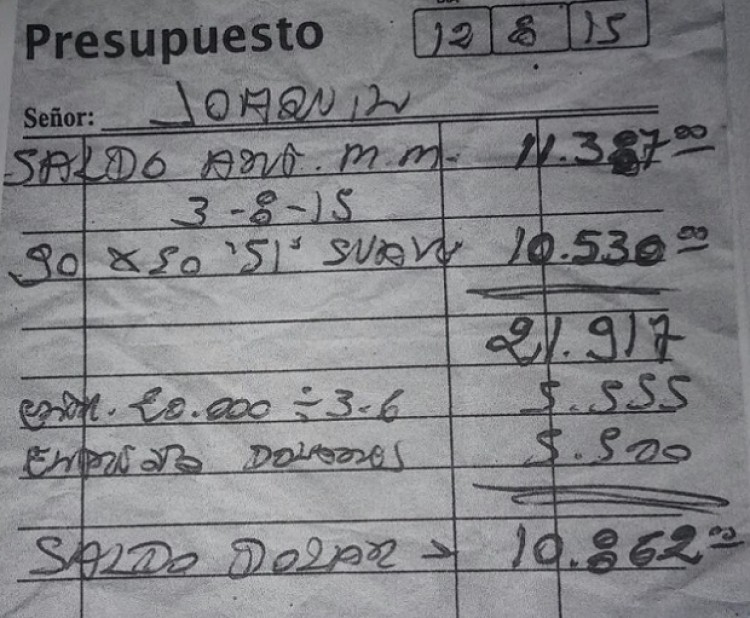 Presupuesto 12 8 15
Señor: JOAQUIN
SALDO ANT. M.M. 11.387 00
3-8-15
90 x 50 '51' SUAVE 10.530 00
21.917
20.000 ÷ 3.6 5.555
DOLARES 5.500
SALDO DOLAR → 10.862 00